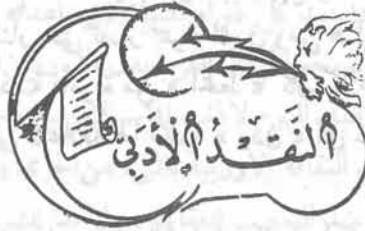 اَلنَّقْدُ الْأَدَبِيّ